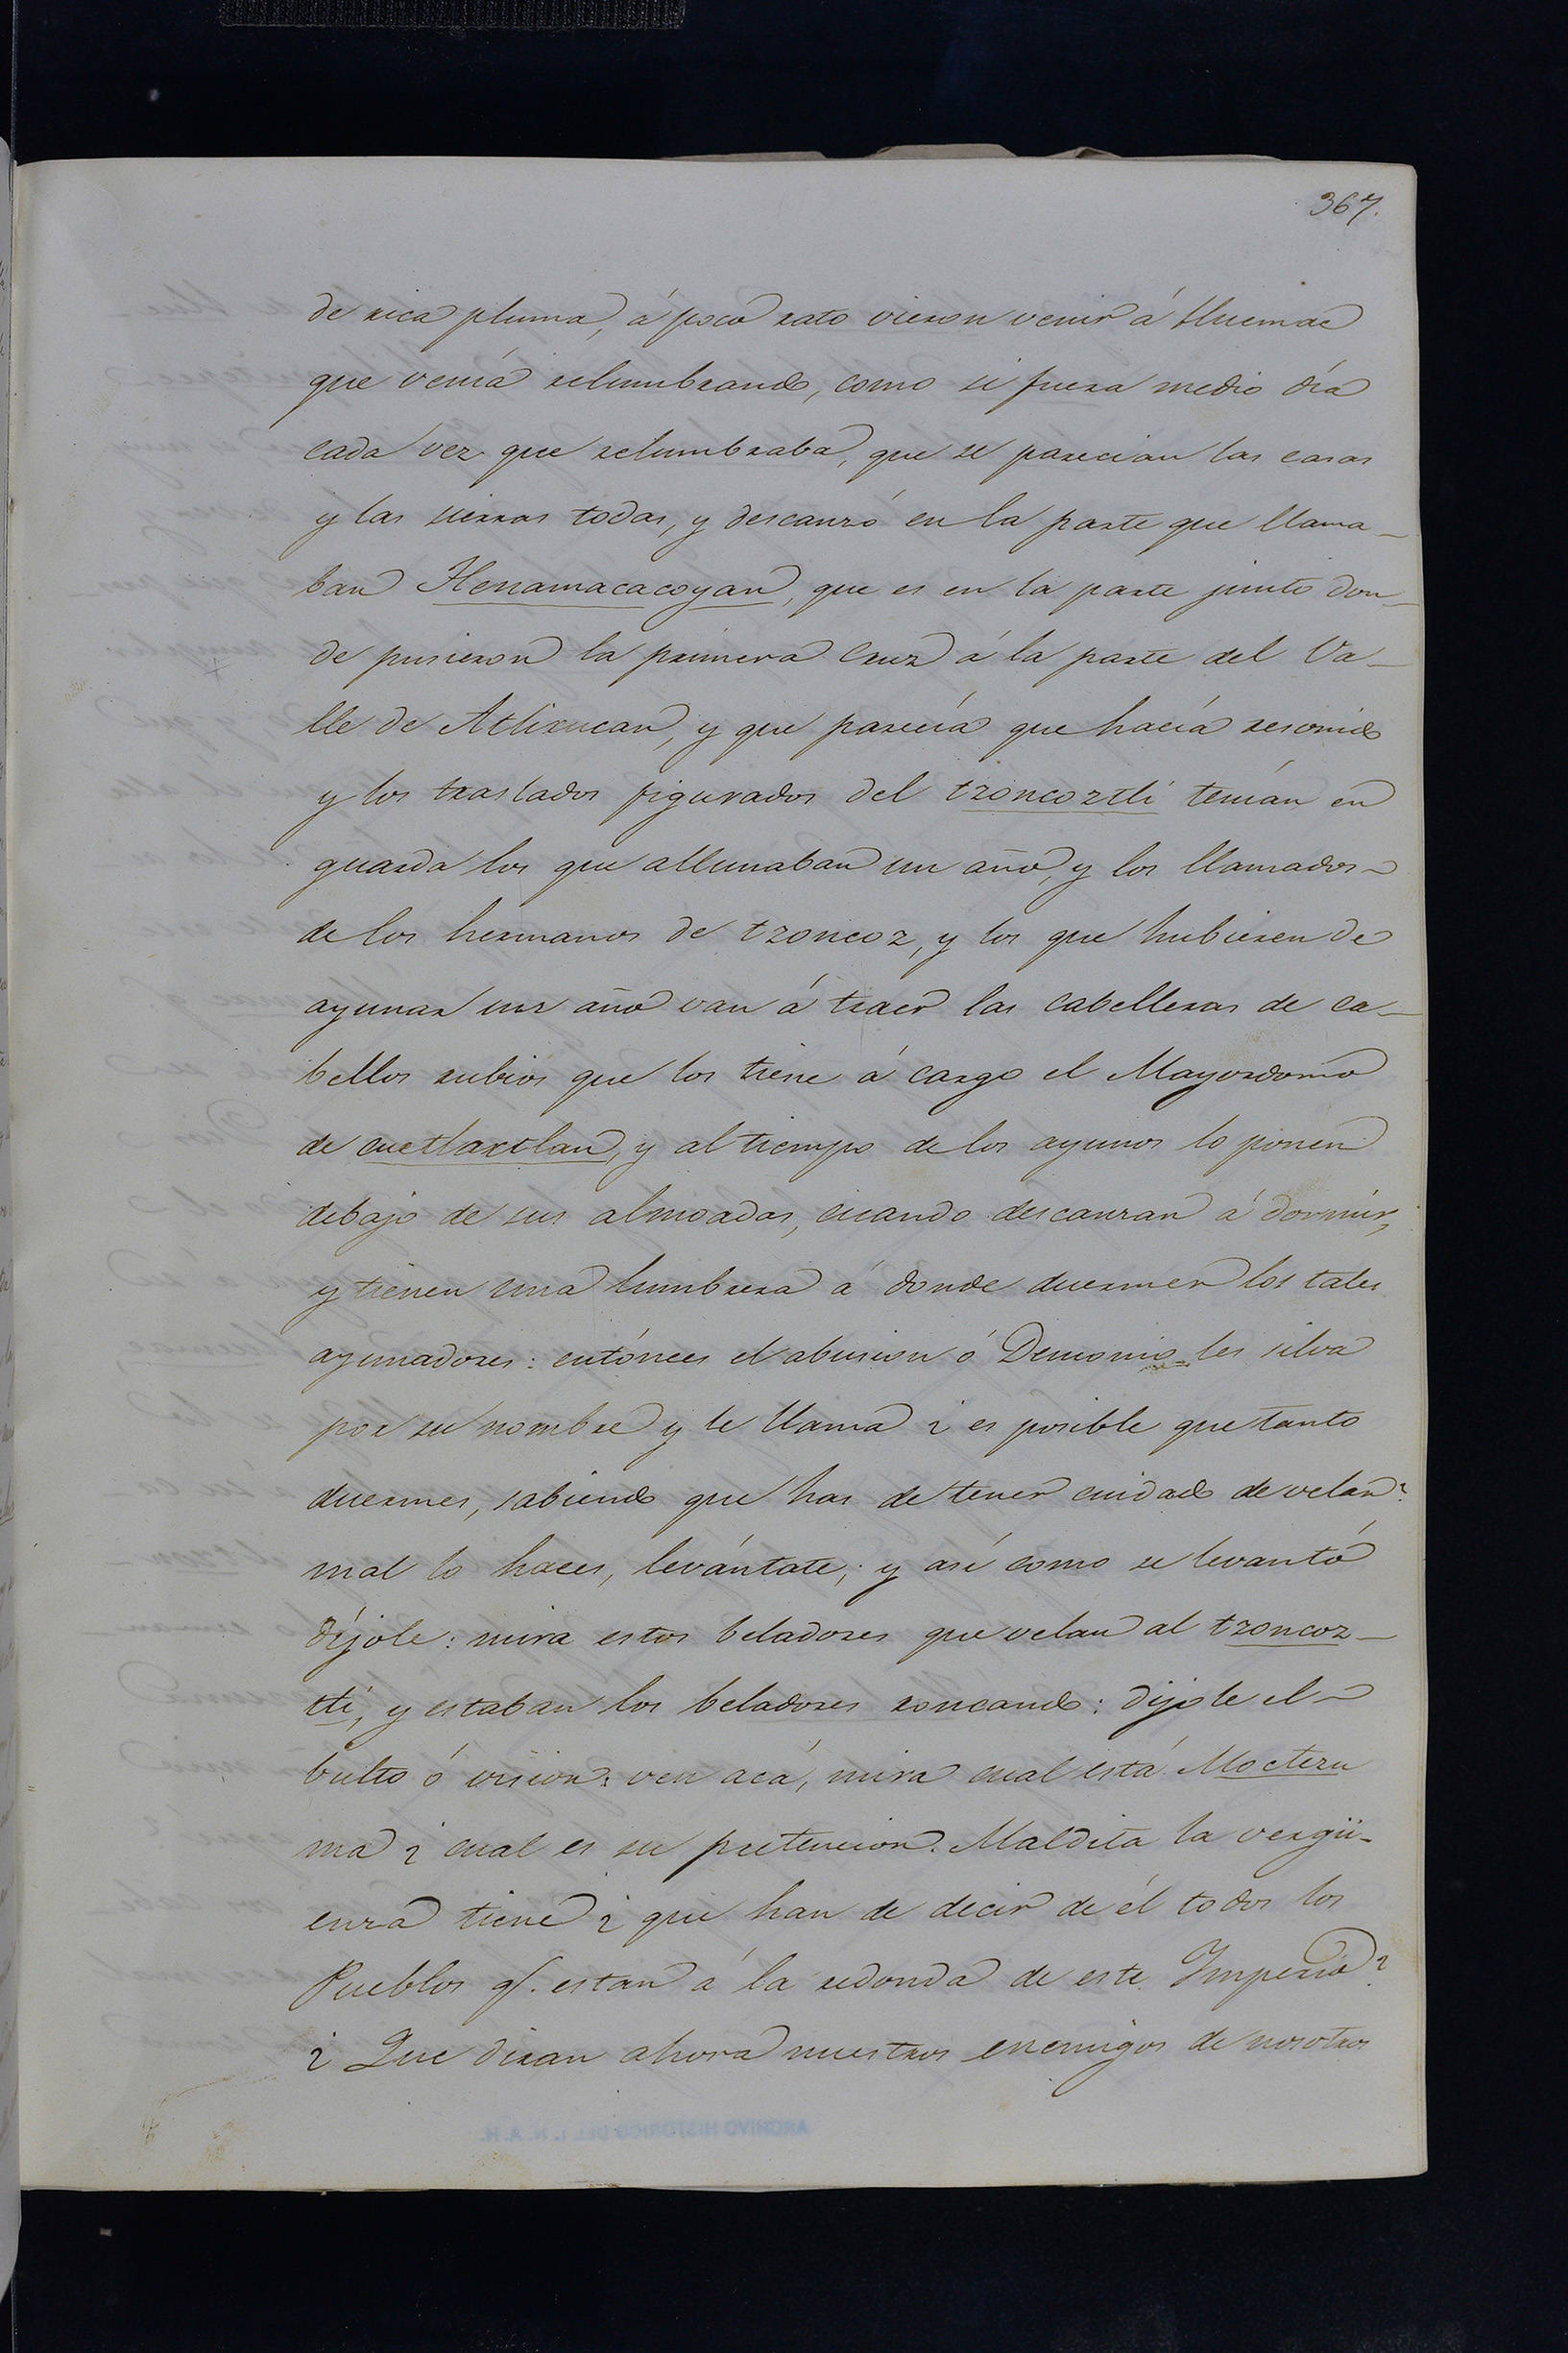 367.
de rica pluma, á poco rato vieron venir á Huemac
que venía relumbrando, como si fuera medio día
cada vez que relumbraba, que se parecian las casas
y las sierras todas, y descanzó en la parte que llama-
ban Henamacacoyan, que es en la parte junto don-
de pusieron la primera Cruz á la parte del Va-
lle de Atlixucan, y que parecía que hacía resonido
y los traslados figurados del tzoncoztli tenían en
guarda los que allunaban un año, y los llamados
de los hermanos de tzoncoz, y los que hubieren de
ayunar un año van á traer las cabelleras de ca-
bellos rubios que los tiene á cargo el Mayordomo
de cuetlaxtlan, y al tiempo de los ayunos lo ponen
debajo de sus almoadas, cuando descanzan á dormir,
y tienen una lumbrera á donde duermen los tales
ayunadores: entónces el abusion ó Demonio les silva
por su nombre y le llama ¿ es posible que tanto
duermes, sabiendo que has de tener cuidado de velar?
mal lo haces, levántate; y así como se levantó
díjole: mira estos beladores que velan al tzoncoz-
tli, y estaban los beladores roncando: dijole el
bulto ó vision: ven acá, mira cual está Moctezu
ma ¿ cual es su pretencion. Maldita la vergü-
enza tiene ¿ que han de decir de él todos los
Pueblos q. estan á la redonda de este Imperio?
¿ Que diran ahora nuestros enemigos de nosotros
ARCHIVO HISTORICO DEL I. N. A. H.